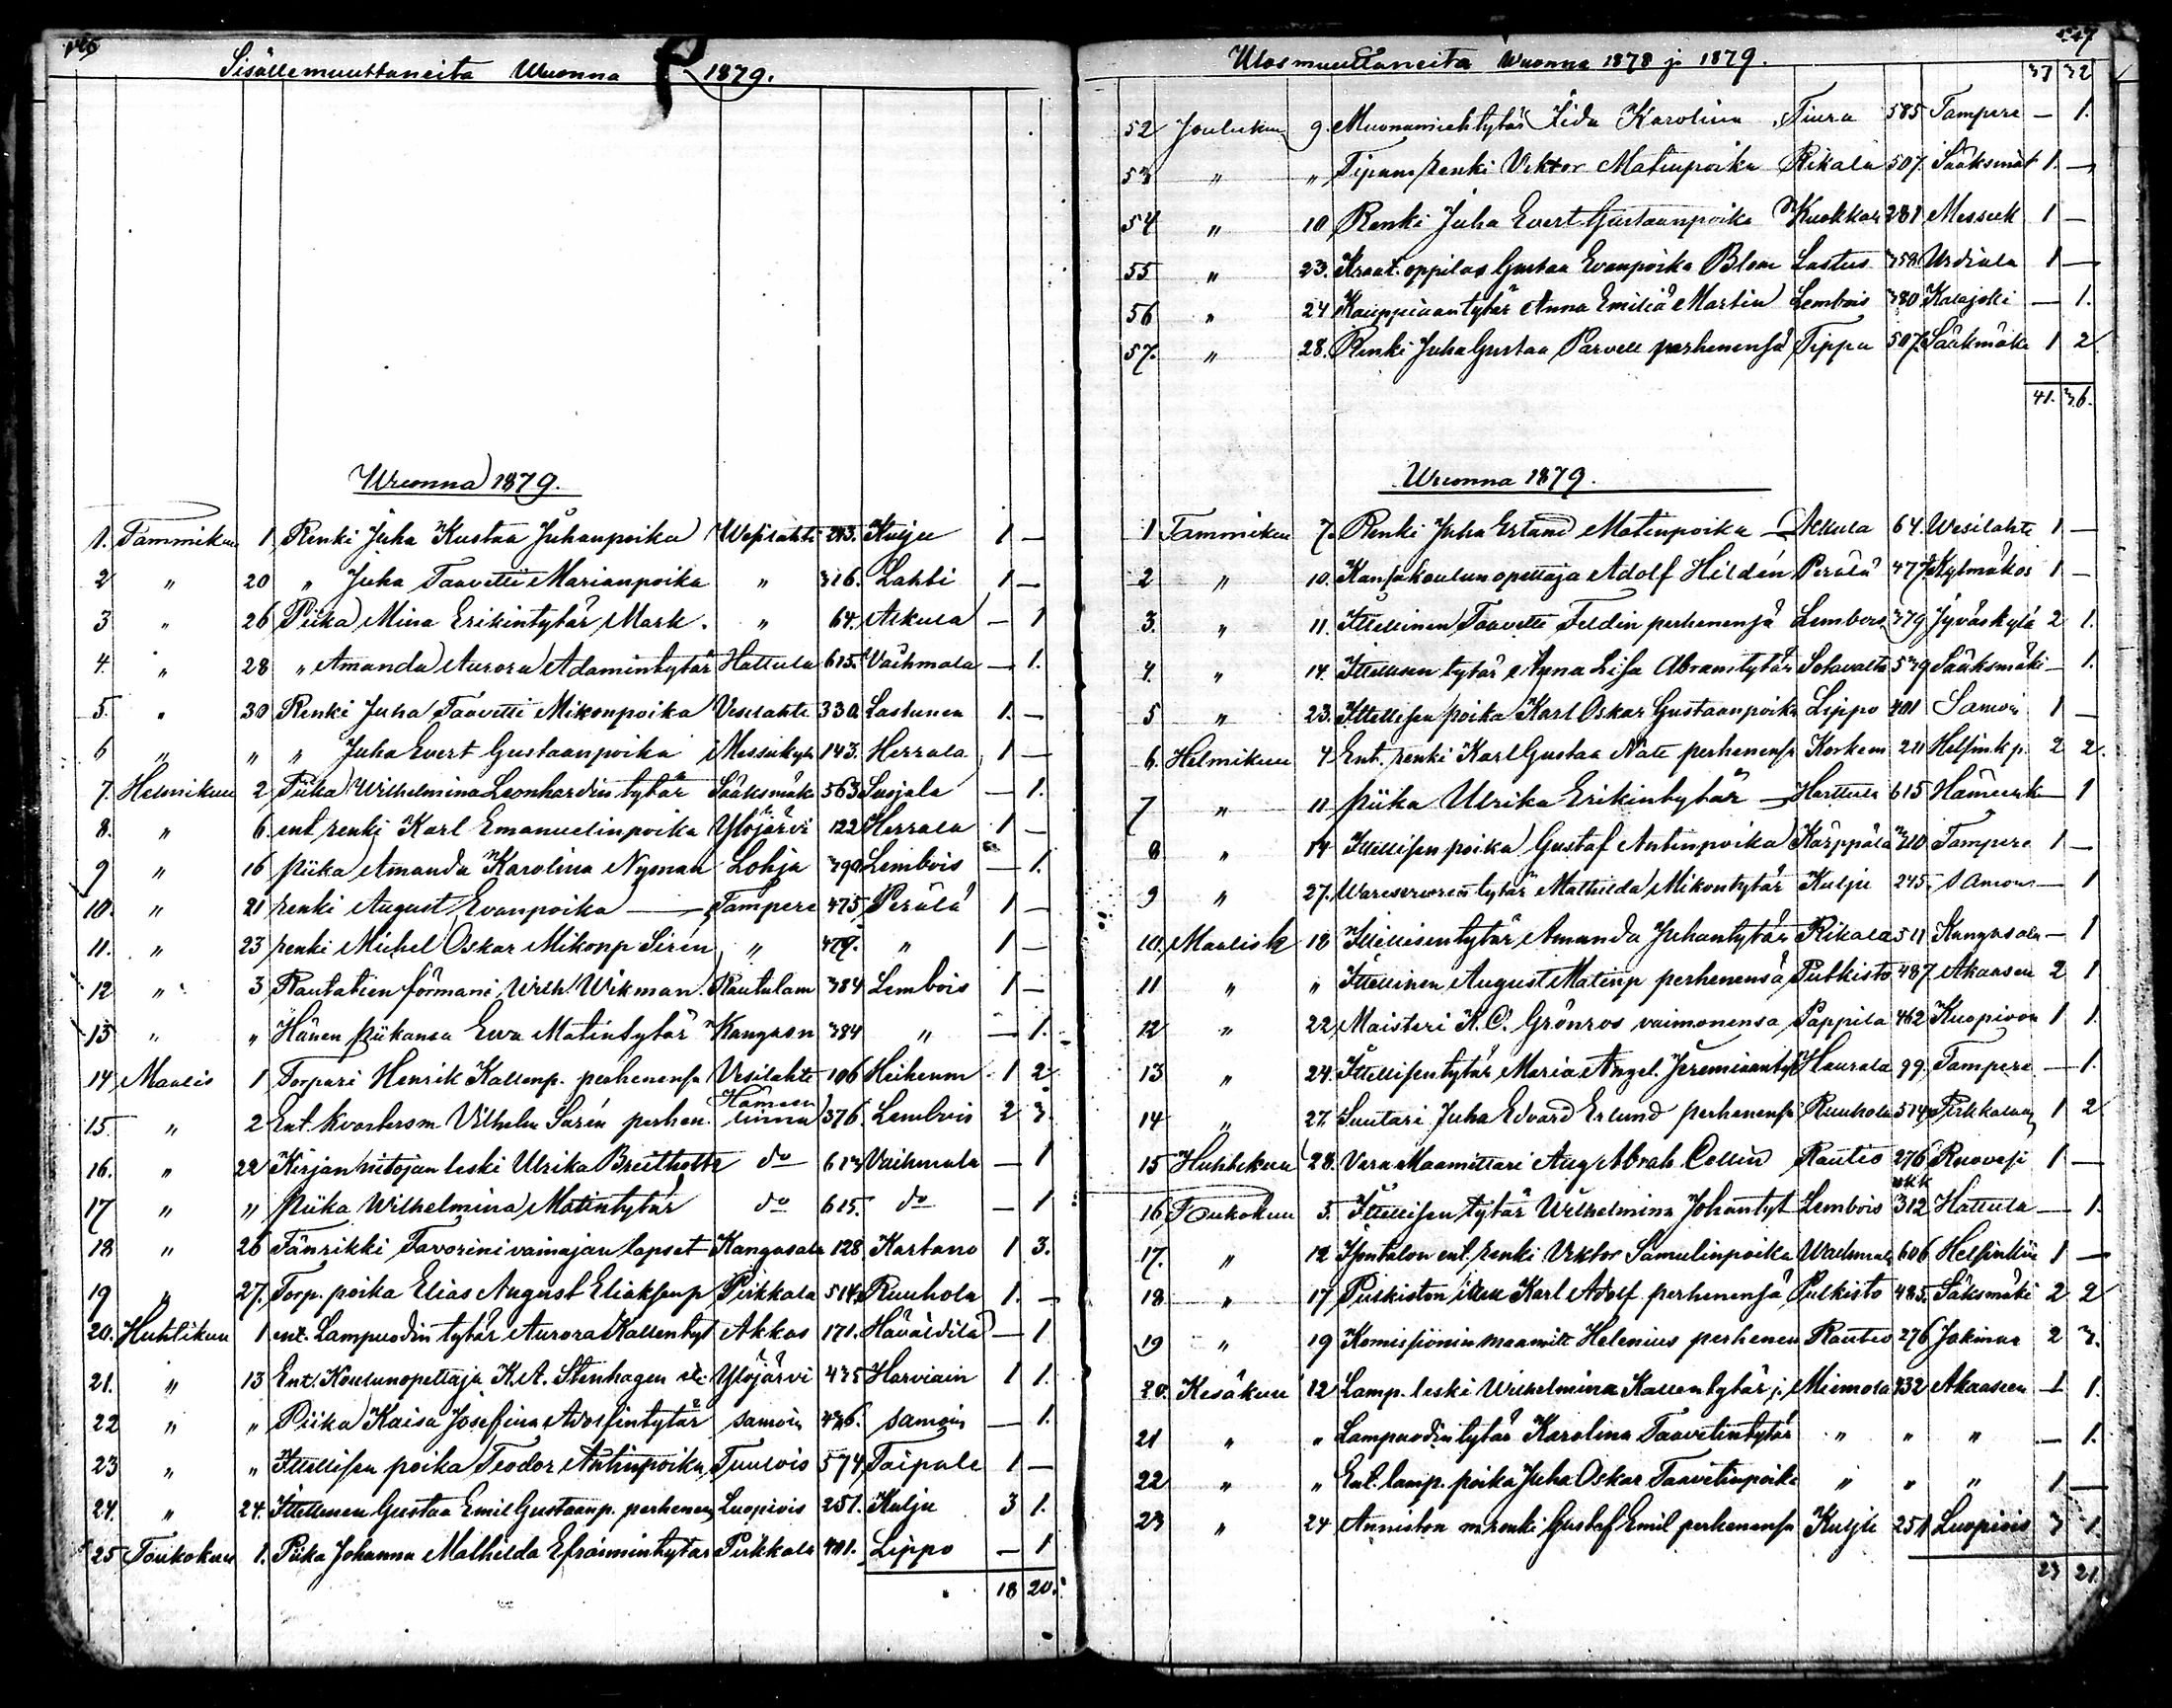 Sisällemuuttaneita Wuonna 1879.
Wuonna 1879.
1. Tammikuu 1 Renki Juha Kustaa Juhanpoika Wesilahti 243. Kulju 1 —
2 " 20 " Juha Taavetti Marianpoika " 316. Lahti 1 —
3 " 26 Piika Mina Erikintytär Mark. " 64. Arkula — 1
4. " 28 " Amanda Aurora Adamintytär Hattula 615. Vaihmala — 1.
5. " 30 Renki Juha Taavetti Mikonpoika Vesilahti 330. Lastunen 1. —
6 " " " Juha Evert Gustaanpoika Messukylä 143. Herrala 1 —
7. Helmikuu 2 Piika Wilhelmina Leonhardintytär Sääksmäk 563 Suojala — 1.
8. " 6. ent renki Karl Emanuelinpoika Ylöjärvi 122 Herrala 1 —
9 " 16 piika Amanda Karolina Nyman Lohja 390 Lembois — 1.
10. " 21 renki August Evanpoika — Tampere 475 Perälä 1 —
11. " 23 renki Michel Oskar Mikonp Sirén " 479. " 1 —
12 " 3 Rautatien förmani Wilh. Wikman. Rautalam 384 Lembois 1 —
13 " " Hänen piikansa Eva Matintytär Kangasn 384 " — 1.
14 Maalis 1 Torpari Henrik Kallenp. perhenensä Vesilahti 106 Heikenm 1 2
15. " 2 Ent. kvartersm Vilhelm Sarén perhen. Hämeenlinna 376. Lembois 2 3.
16. " 22 Kirjansitojan leski Ulrika Breitholtz do 613 Vaihmala — 1
17 " " piika Wilhelmina Matintytär do 615. do — 1
18 " 26 Fänrikki Favorini vainajan lapset Kangasala 128. Kartano 1 3.
19 " 27. Torp. poika Elias August Eliaksenp Pirkkala 514. Ruuhola 1. —
20. Huhtikuu 1 ent. Lampuodin tytär Aurora Kallentyt Akkas 171. Häväldilä — 1
21. " 13 Ent. Koulunopettaja K. A. Stenhagen Ylöjärvi 435 Harviain 1 1.
22 " " Piika Kaisa Josefina Adolfintytär samoin 436. samoin — 1.
23 " " Itsellisen poika Teodor Antinpoika Tuulois 574 Taipale 1 —
24. " 24. Itsellinen Gustaa Emil Gustaanp. perhenens Luopiois 251. Kulju 3 1.
25 Toukokuu 1. Piika Johanna Mathilda Efraimintytar Pirkkala 401. Lippo — 1
18 20.
Ulosmuuttaneita Wuonna 1878 ja 1879.
37 32
52 Joulukuu 9. Muonamiehtytär Iida Karolina Tiura 585 Tampere — 1.
53 " " Tipam renki Viktor Matinpoika Rikala 507. Sääksmäk 1. —
54 " 10 Renki Juha Evert Gustaanpoika Kuokkala 281 Messuk 1 —
55 " 23. Kraat. oppilas Gustaa Evanpoika Blom Lastus 358. Urdiala 1 —
56 " 24 Kauppiaantytär Anna Emilia Martin Lembois 380 Kalajoki — 1.
57. " 28. Renki Juha Gustaa Parvell perhenensä Tippa 507. Sääksmäki 1 2.
41. 36.
Wuonna 1879.
1 Tammikuu 7. Renki Juha Erland Matinpoika — Arkula 64. Wesilahti 1 —
2 " 10. Kansakoulunopettaja Adolf Hildén Perälä 477 Kylmäkos 1 —
3. " 11. Itsellinen Taavetti Feldin perhenensä Lembois 379 Jyväskylä 2 1.
4. " 14. Itsellisen tytär Anna Lisa Abramtytär Sotavalta 539 Sääksmäki — 1.
5 " 23. Itsellisen poika Karl Oskar Gustaanpoika Lippo 401 Samoin 1 —
6. Helmikuu 4 Ent. renki Karl Gustaa Näte perhenensa Korkem 211 Helsink p. 2 2.
7 " 11 piika Ulrika Erikintytär — Harttula 615 Hämeenk — 1
8 " 14 Itsellisen poika Gustaf Antinpoika Kärppälä 210 Tampere 1 —
9 " 27. tytär Mathilda Mikontytär Kulju 245. Samoin — 1
10. Maalisk 18 Itsellisentytär Amanda Juhantytär Rikala 511 Kangasala — 1
11 " " Itsellinen August Matinp perhenensä Pulkisto 487 Akaasen 2 1
12 " 22 Maisteri K. O. Grönros vaimonensa Pappila 462 Kuopioon 1 1.
13 " 24. Itsellisentytär Maria Angel. Jeremiaantyt Haurala 99. Tampere — 1.
14 " 27. Suutari Juha Edvard Erlund perhenensä Ruuhola 514 Pirkkalaan 1 2
15 Huhtikuu 28. Vara Maamittari Aug. Abrah. Collin Rautio 276 Ruovesi 1 —
16 Toukokuu 5. Itsellisen tytär Wilhelmina Johantyt Lembois 312 Hattula — 1.
17. " 12 ent. renki Viktor Samulinpoika Waihmala 606 Helsinkiin 1 —
18 " 17 Pulkiston Karl Adolf perhenensä Pulkisto 485. Säksmäki 2 2
19 " 19 Komissionin maamitt Helenius perhenen Rautio 276 Jokinna 2 3.
20. Kesäkuu 12 Lamp. leski Wilhelmina Kallentytär j. Miemola 432 Akaaseen — 1.
21 " " Lampuodin tytär Karolina Taavetintytär " " " — 1.
22 " " Ent. lamp. poika Juha Oskar Taavetinpoika " " " 1 —
23 " 24 Anniston m. renki Gustaf Emil perhenensä Kulju 251 Luopiois 3 1
23 21.